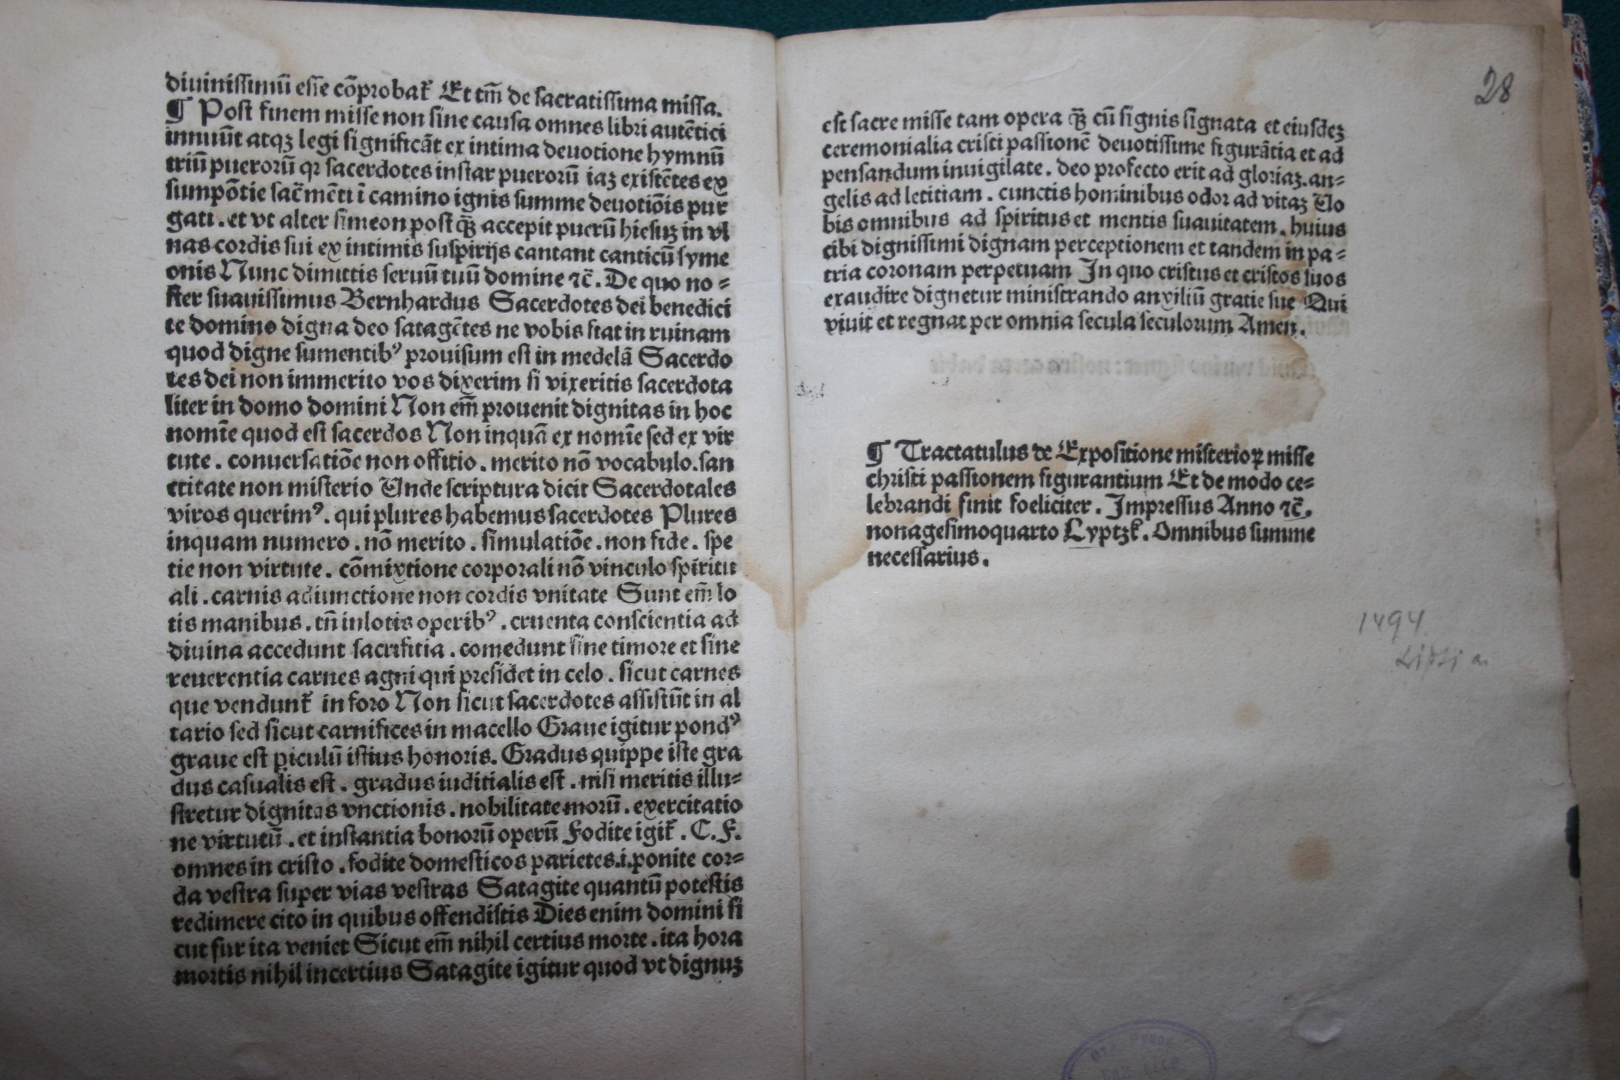 diuinissimū esse cōprobat᷑ Et tm̄ de sacratissima missa.
¶ Post finem misse non sine causa omnes libri autētici
innuūt atqꝫ legi significāt ex intima deuotione hymnū
triū puerorū qꝛ sacerdotes instar puerorū iaꝫ existētes ex
sumpōtie sac̄mēti ī camino ignis summe deuotiōis pur
gati . et vt alter simeon post qꝫ accepit puerū hiesuꝫ in vl
nas cordis sui ex intimis suspirijs cantant canticū syme
onis Nunc dimittis seruū tuū domine ⁊c̄. De quo no =
ster suauissimus Bernhardus Sacerdotes dei benedici
te domino digna deo satagētes ne vobis fiat in ruinam
quod digne sumentibꝰ prouisum est in medelā Sacerdo
tes dei non immerito vos dixerim si vixeritis sacerdota
liter in domo domini Non em̄ prouenit dignitas in hoc
nomīe quod est sacerdos Non inquā ex nomīe sed ex vir
tute . conuersatiōe non offitio . merito nō vocabulo . san
ctitate non misterio Unde scriptura dicit Sacerdotales
viros querimꝰ. qui plures habemus sacerdotes Plures
inquam numero . nō merito . simulatiōe . non fide . spe
tie non virtute . cōmixtione corporali nō vinculo spiritu
ali . carnis adiunctione non cordis vnitate Sunt em̄ lo
tis manibus . tn̄ inlotis operibꝰ . cruenta conscientia ad
diuina accedunt sacrifitia . comedunt sine timore et sine
reuerentia carnes agni qui presidet in celo . sicut carnes
que vendunt᷑ in foro Non sicut sacerdotes assistūt in al
tario sed sicut carnifices in macello Graue igitur pondꝰ
graue est ꝑiculū istius honoris. Gradus quippe iste gra
dus casualis est . gradus iuditialis est . nisi meritis illu=
stretur dignitas vnctionis . nobilitate morū . exercitatio
ne virtutū . et instantia bonorū operū Fodite igit᷑ . C. F.
omnes in cristo . fodite domesticos parietes.i.ponite cor=
da vestra super vias vestras Satagite quantū potestis
redimere cito in quibus offendistis Dies enim domini si
cut fur ita veniet Sicut em̄ nihil certius morte . ita hora
mortis nihil incertius Satagite igitur quod vt dignuꝫ
28
est sacre misse tam opera qꝫ cū signis signata et eiusdeꝫ
ceremonialia cristi passionē deuotissime figurātia et ad
pensandum inuigilate . deo profecto erit ad gloriaꝫ . an=
gelis ad letitiam . cunctis hominibus odor ad vitaꝫ Uo
bis omnibus ad spiritus et mentis suauitatem . huius
cibi dignissimi dignam perceptionem et tandem in pa=
tria coronam perpetuam In quo cristus et cristos suos
exaudire dignetur ministrando auxiliū gratie sue Qui
viuit et regnat per omnia secula seculorum Amen.
¶ Tractatulus de Expositione misterioꝝ misse
christi passionem figurantium Et de modo ce=
lebrandi finit foeliciter . Impressus Anno ⁊c̄.
nonagesimoquarto Lyptzk̄. Omnibus summe
necessarius.
1494.